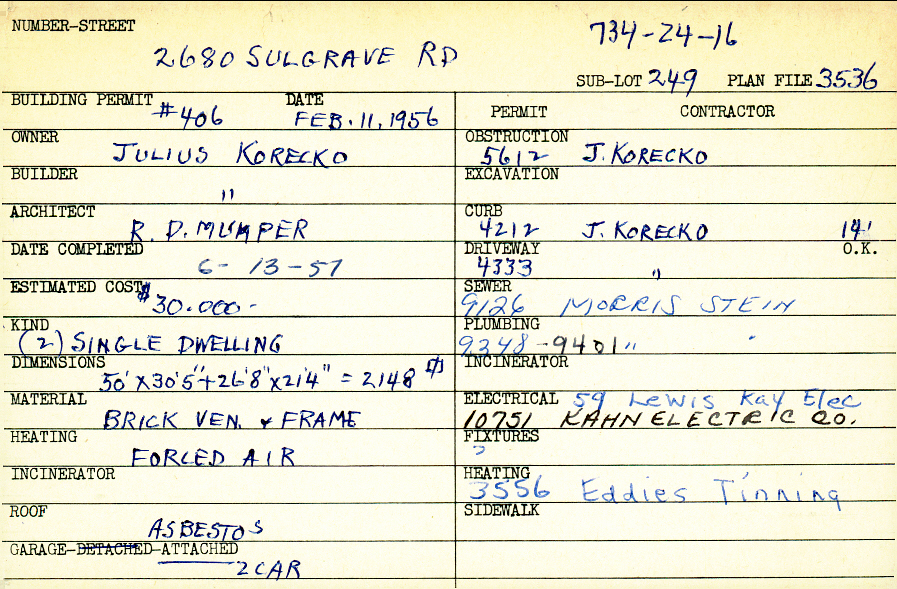 NUMBER-STREET
2680 SULGRAVE RD
734-24-16
SUB-LOT 249 PLAN FILE 3536
BUILDING PERMIT #406 DATE FEB. 11, 1956
OWNER JULIUS KORECKO
BUILDER "
ARCHITECT R. D. MUMPER
DATE COMPLETED 6-13-57
ESTIMATED COST $30.000-
KIND (2) SINGLE DWELLING
DIMENSIONS 50' X 30'5" + 26'8" X 21'4" = 2148
MATERIAL BRICK VEN. & FRAME
HEATING FORCED AIR
INCINERATOR
ROOF ASBESTOS
GARAGE-DETACHED-ATTACHED 2 CAR
PERMIT CONTRACTOR
OBSTRUCTION 5612 J. KORECKO
EXCAVATION
CURB 4212 J. KORECKO 14'
DRIVEWAY 4333 " O.K.
SEWER 9126 MORRIS STEIN
PLUMBING 9348-9401 " "
INCINERATOR
ELECTRICAL 59 Lewis Kay Elec
10751 KAHN ELECTRIC CO.
FIXTURES
HEATING 3556 Eddies Tinning
SIDEWALK